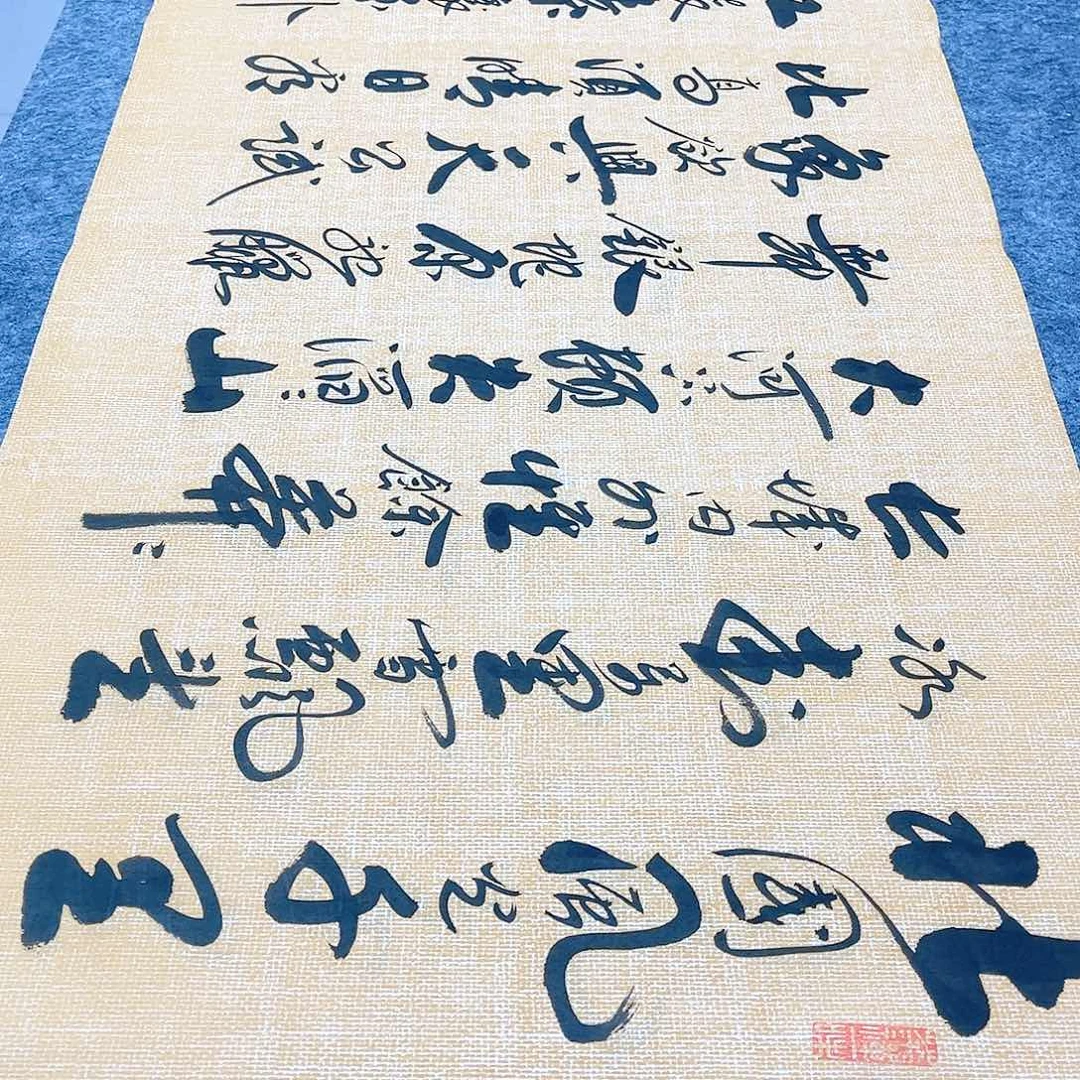 北國風光千里
冰封萬里雪飄望
長城内外惟餘莽々
大河上下頓失滔々山
舞銀蛇原馳蠟
象欲與天公試
比高須晴日看